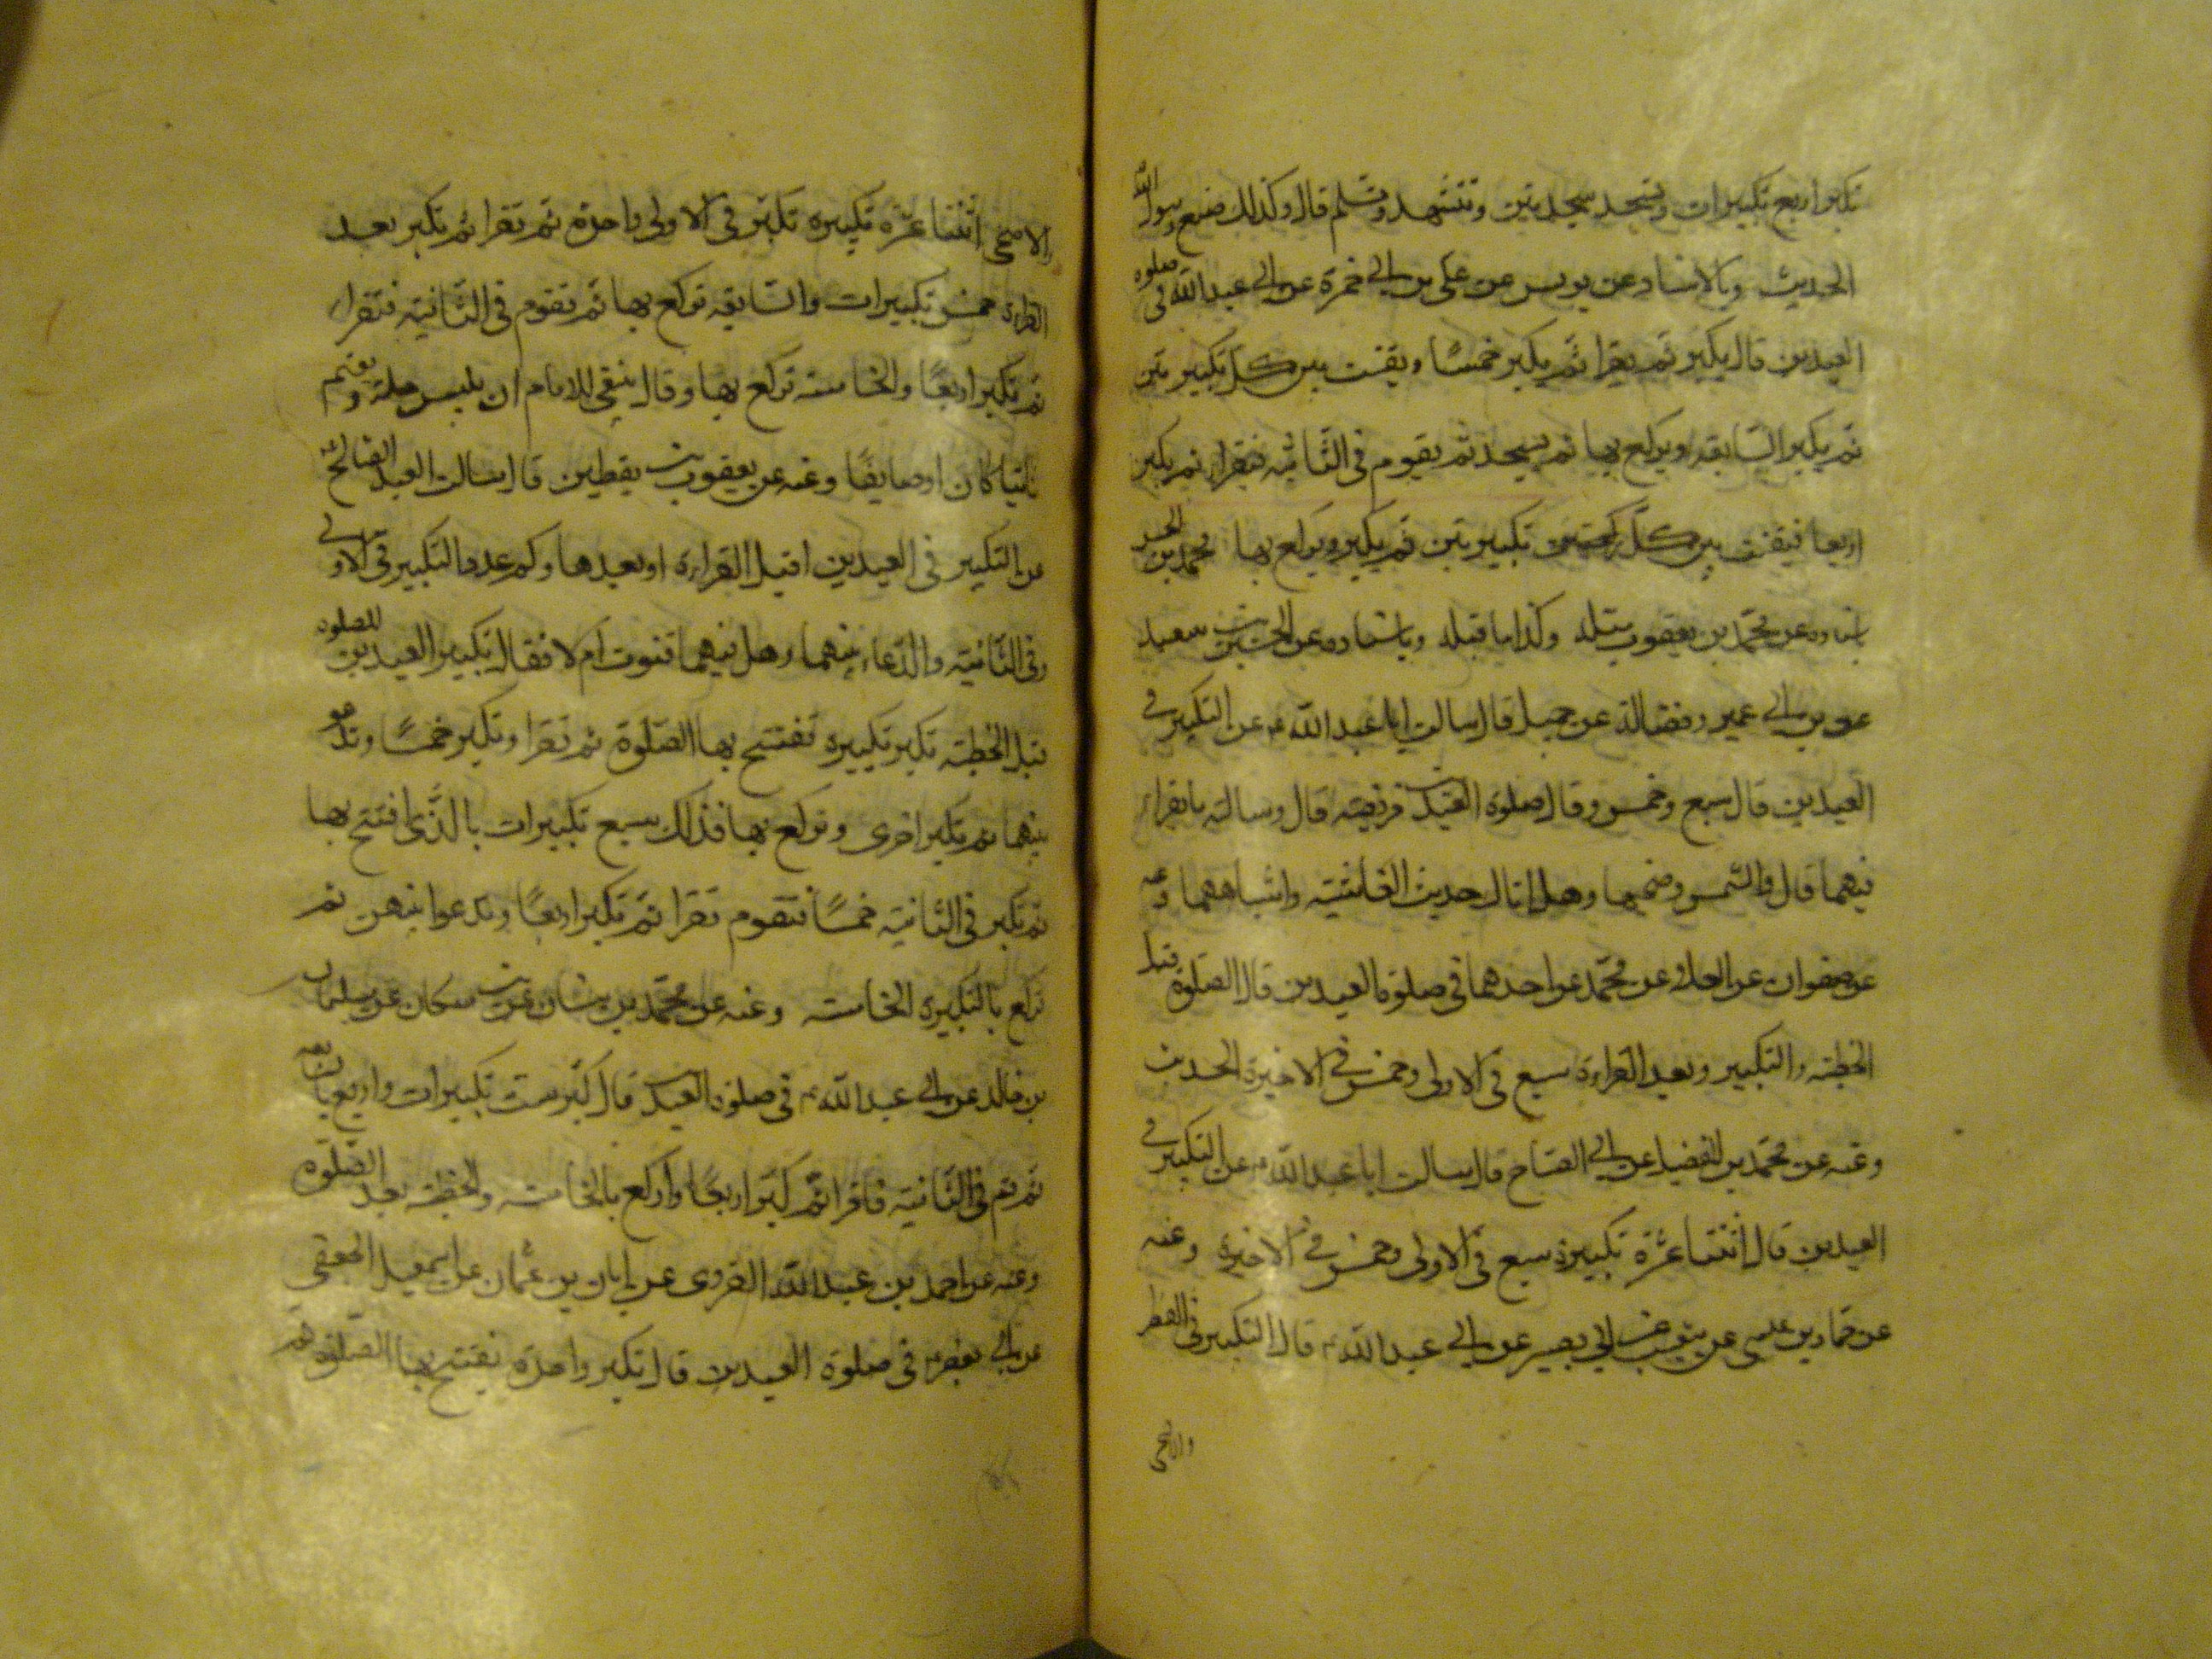 تكبر اربع تكبيرات وتسجد سجدتين وتتشهد وتسلم قال وكذلك صنع رسول الله
الحديث وبالاسناد عن يونس عن على بن ابي حمزة عن ابي عبدالله في صلوة
العيدين قال يكبر ثم يقرا ثم يكبر خمسًا ويقنت بين كل تكبيرتين
ثم يكبر السابعة ويركع بها ثم يسجد ثم يقوم في الثانية فيقرا ثم يكبر
اربعا فيقنت بين كل تكبيرتين ثم يكبر ويركع بها محمد بن الحسن
باسناده عن محمد بن يعقوب مثله وكذا ما قبله وباسناده عن الحسين بن سعيد
عن بن ابي عمير وفضالة عن جميل قال سالت ابا عبدالله ع عن التكبير في
العيدين قال سبع وخمس وقال صلوة العيدين فريضة قال وسالته ما يقراء
فيهما قال والشمس وضحيها وهل اتاك حديث الغاشية واشباههما وعنه
عن صفوان عن العلا عن محمد عن احدهما في صلوة العيدين قال الصلوة قبل
الخطبة والتكبير وبعد القراءة سبع في الاولى وخمس في الاخيرة الحديث
وعنه عن محمد بن الفضيل عن ابي الصباح قال سالت ابا عبدالله ع عن التكبير في
العيدين قال اثنتا عشرة تكبيرة سبع في الاولى وخمس في الاخيرة وعنه
عن حماد بن عيسى عن شعيب عن ابي بصير عن ابي عبدالله ع قال التكبير في الفطر
والاضحى
والاضحى اثنتا عشرة تكبيرة تكبر في الاولى واحدة ثم تقرا ثم تكبر بعد
القراءة خمس تكبيرات والسابعة تركع بها ثم تقوم في الثانية فتقرا
ثم تكبر اربعًا والخامسة تركع بها وقال ينبغي للامام ان يلبس حلة ويعتم
شاتيا كان او صايفًا وعنه عن يعقوب بن يقطين قال سالت العبد الصالح ع
عن التكبير في العيدين اقبل القراءة او بعدها وكم عدد التكبير في الاولى
وفي الثانية والدعاء بينهما وهل فيهما قنوت ام لا فقال تكبير العيدين للصلوة
قبل الخطبة تكبر تكبيرة تفتتح بها الصلوة ثم تقرا وتكبر خمسًا وتدعو
بينهما ثم تكبر اخرى وتركع بها فذلك سبع تكبيرات بالذي افتتح بها
ثم تكبر في الثانية خمسًا فتقوم تقرا ثم تكبر اربعًا وتدعوا بينهن ثم
تركع بالتكبيرة الخامسة وعنه عن محمد بن سنان عن بن مسكان عن سليمان
بن خالد عن ابي عبدالله ع في صلوة العيدين قال كبر ست تكبيرات واركع بالسابعه
ثم قم في الثانية فاقرا ثم كبر اربعًا واركع بالخامسة والخطبة بعد الصلوة
وعنه عن احمد بن عبدالله القروى عن ابان بن عثمان عن اسمعيل الجعفى
عن ابي جعفر ع في صلوة العيدين قال تكبر واحدة يفتتح بها الصلوة ثم